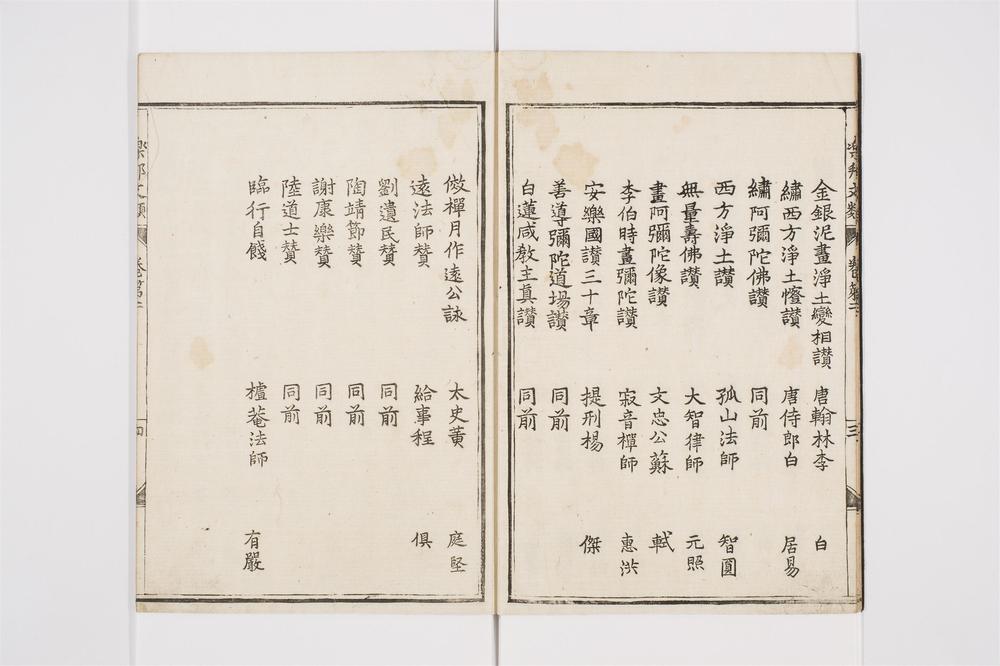 金銀泥畫淨土變相讃　唐翰林李　白
繡西方淨土㡧讃　唐侍郎白　居易
繡阿彌陀佛讃　同前
西方淨土讃　孤山法師　智圓
無量壽佛讃　大智律師　元照
畫阿彌陀像讃　文忠公蘇　軾
李伯時畫彌陀讃　寂音禪師　惠洪
安樂國讃三十章　提刑楊　傑
善導彌陀道場讃　同前
白蓮咸教主真讃　同前
樂邦文類　卷第二　三
倣禪月作遠公詠　太史黄　庭堅
遠法師贊　給事程　俱
劉遺民贊　同前
陶靖節贊　同前
謝康樂贊　同前
陸道士贊　同前
臨行自餞　櫨菴法師　有嚴
樂邦文類　卷第二　四